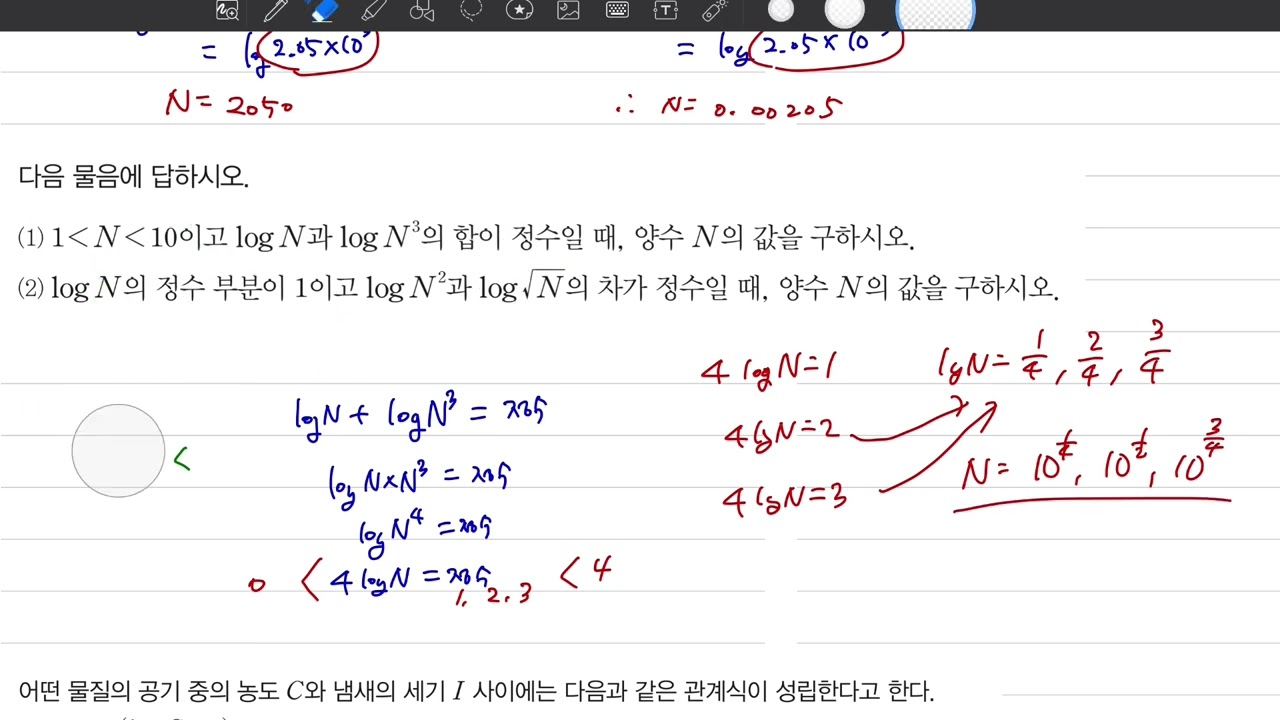 = log 2.05×10³
N = 2050
= log 2.05×10
∴ N = 0.00205
다음 물음에 답하시오.
(1) 1<N<10이고 log N과 log N³의 합이 정수일 때, 양수 N의 값을 구하시오.
(2) log N의 정수 부분이 1이고 log N²과 log √N의 차가 정수일 때, 양수 N의 값을 구하시오.
logN + logN³ = 정수
log N×N³ = 정수
log N⁴ = 정수
0 < 4 logN = 정수 < 4
1. 2. 3
<
4 logN = 1
4 logN = 2
4 logN = 3
logN = 1/4, 2/4, 3/4
N = 10^(1/4), 10^(1/2), 10^(3/4)
어떤 물질의 공기 중의 농도 C와 냄새의 세기 I 사이에는 다음과 같은 관계식이 성립한다고 한다.